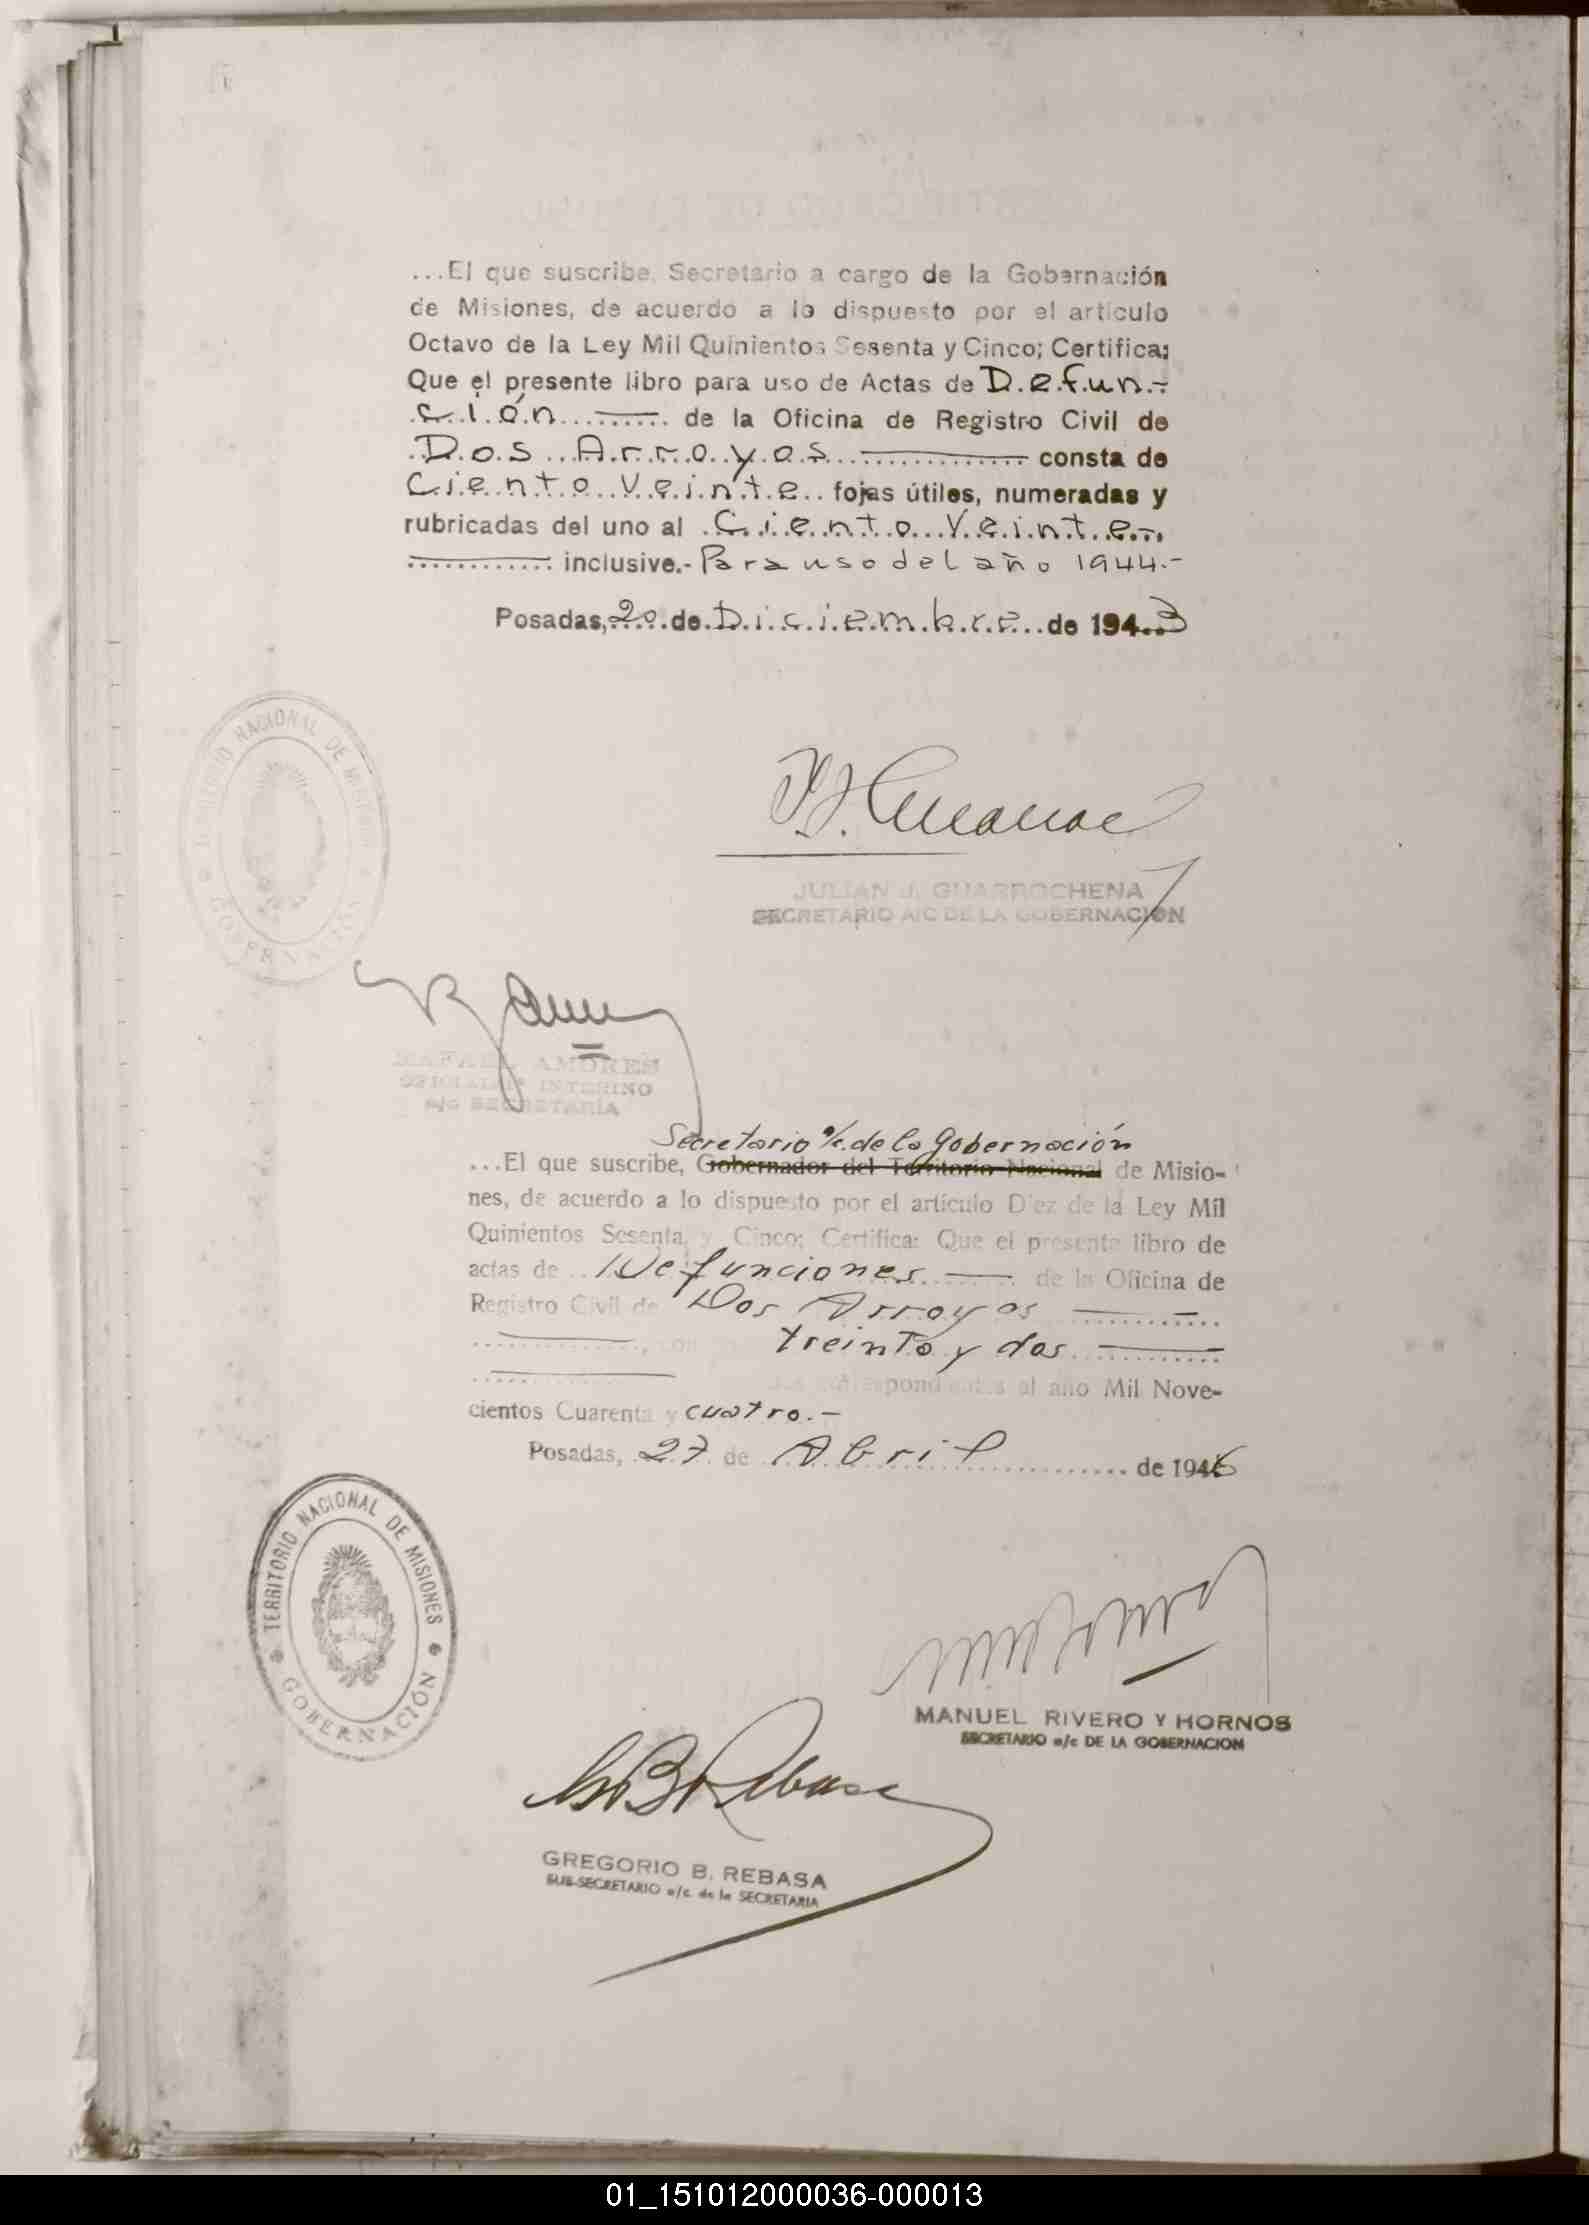 ...El que suscribe, Secretario a cargo de la Gobernación
de Misiones, de acuerdo a lo dispuesto por el artículo
Octavo de la Ley Mil Quinientos Sesenta y Cinco; Certifica:
Que el presente libro para uso de Actas de Defun-
ción de la Oficina de Registro Civil de
Dos Arroyos consta de
Ciento Veinte fojas útiles, numeradas y
rubricadas del uno al Ciento Veinte
inclusive.- Para uso del año 1944.-
Posadas, 20 de Diciembre de 1943
TERRITORIO NACIONAL DE MISIONES
GOBERNACIÓN
JULIAN J. GUARROCHENA
SECRETARIO A/C DE LA GOBERNACION
RAFAEL AMORES
OFICIAL INTERINO
A/C SECRETARÍA
Secretario a/c. de la Gobernación
...El que suscribe, Gobernador del Territorio Nacional de Misio-
nes, de acuerdo a lo dispuesto por el artículo Diez de la Ley Mil
Quinientos Sesenta y Cinco; Certifica: Que el presente libro de
actas de Defunciones de la Oficina de
Registro Civil de Dos Arroyos
treinta y dos
correspondientes al año Mil Nove-
cientos Cuarenta y cuatro.-
Posadas, 27 de Abril de 1946
TERRITORIO NACIONAL DE MISIONES
GOBERNACIÓN
MANUEL RIVERO Y HORNOS
SECRETARIO a/c DE LA GOBERNACION
GREGORIO B. REBASA
SUB-SECRETARIO a/c de la SECRETARIA
01_151012000036-000013